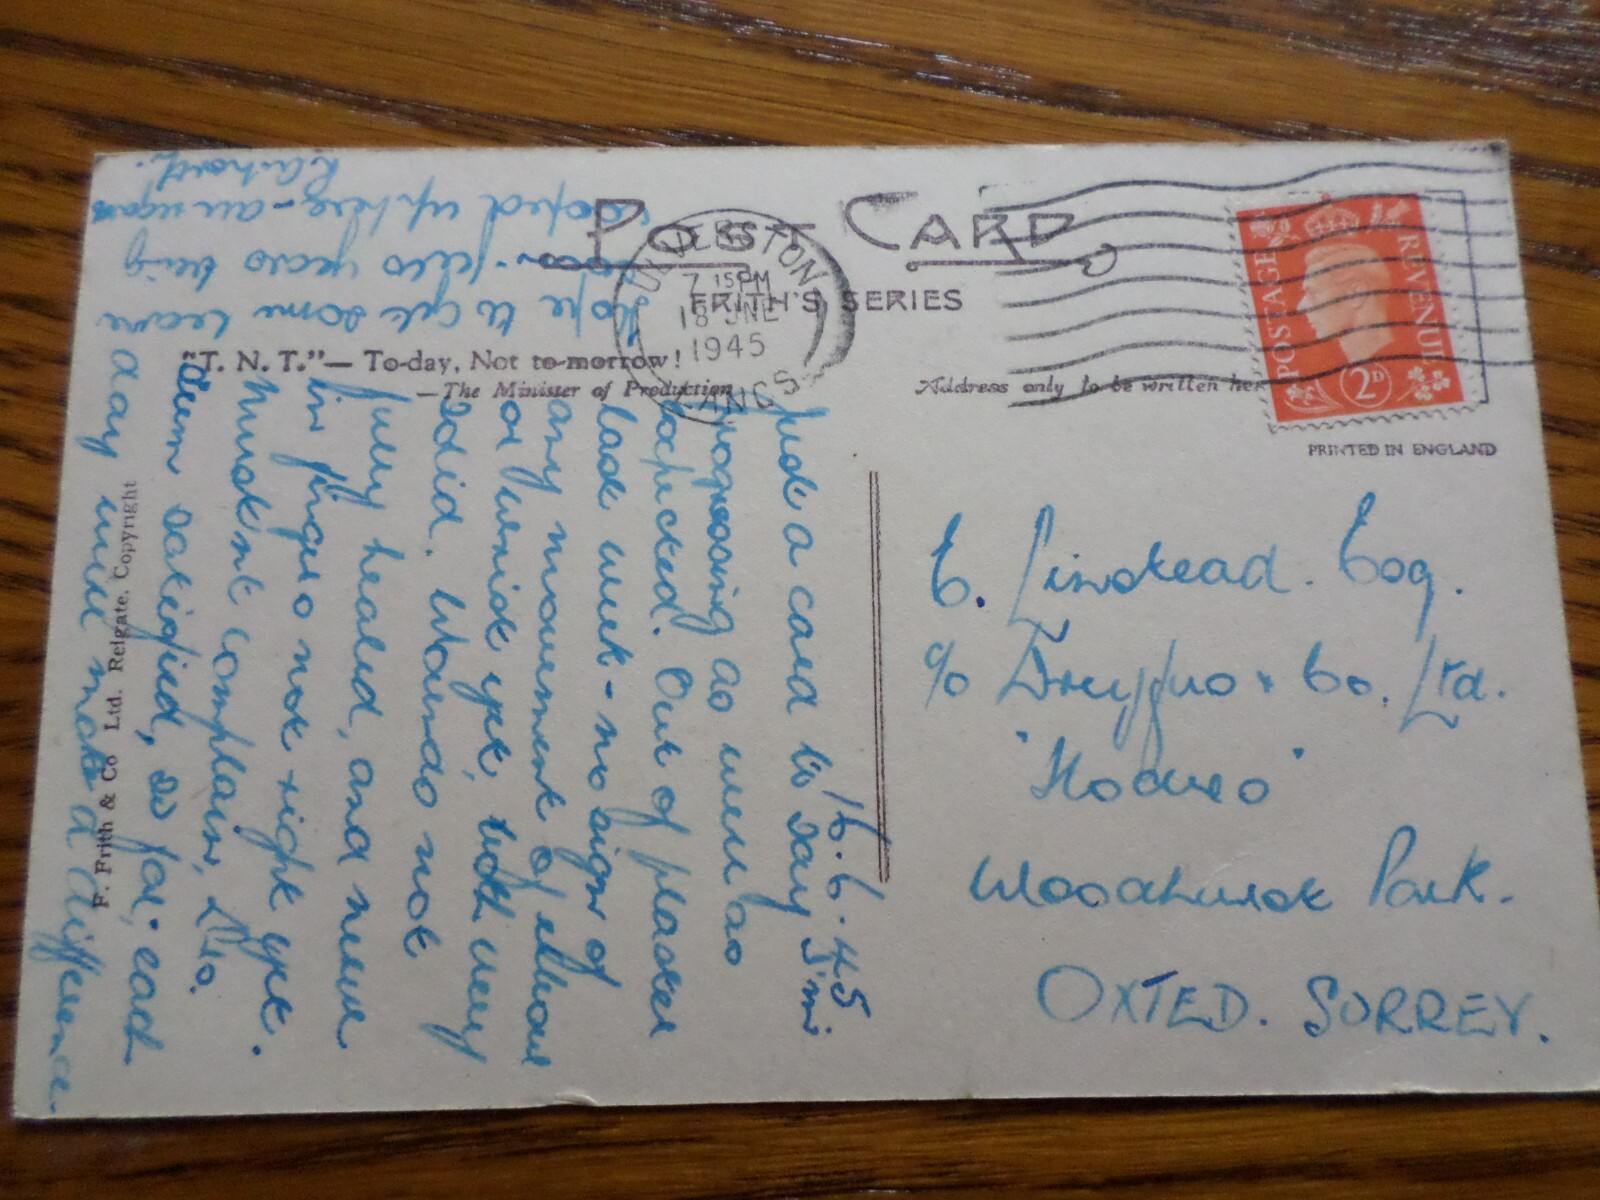 POST CARD
FRITH'S SERIES
ULVERSTON
7 15PM
18 JNE
1945
LANCS
POSTAGE
REVENUE
2D
"T. N. T."— To-day, Not to-morrow!
—The Minister of Production
Address only to be written here
PRINTED IN ENGLAND
F. Frith & Co Ltd. Reigate. Copyright
16.6.45
Just a card to say I'm
progressing as well as
expected. Out of plaster
last week - no sign of
any movement of elbow
or wrist yet, both very
solid. Wounds not
fully healed, and nerve
in fingers not right yet.
Mustn't complain,
seem satisfied, so far; each
day will make a difference.
Hope to get some leave
soon - years being
cooped up here - am again
E. Linstead. Esq.
c/o Dreyfus & Co. Ltd.
Woodhurst Park.
OXTED. SURREY.